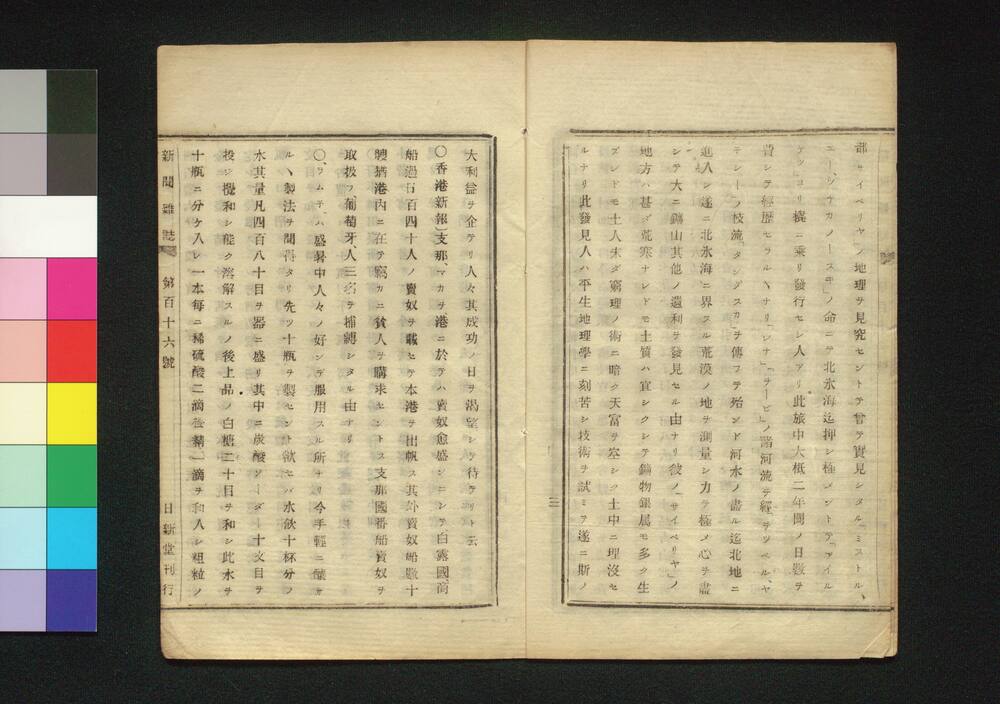 部セイベリヤ」ノ地理ヲ見究セントテ曾テ實見シタル「ミストル、
エー、シナカノースキ」ノ命ニテ北氷海迄押シ極メントテ「アイル
ケツ」コリ橇ニ乗リ發行セシ人アリ此旅中大概二年間ノ日數ヲ
費シテ經歴セラルヽナリ「レナ」「ヲービ」ノ諸河流ヲ經テヲツベルヽヤ
モシーノ枝流「タンダスカ」ヲ傳フテ殆ンド河水ノ盡ル迄北地ニ
進入シ遂ニ北氷海ニ界スル荒漠ノ地ヲ測量シ力ヲ極メ心ヲ盡
シテ大ニ鑛山其他ノ遺利ヲ發見セル由ナリ彼ノ「サイベリヤ」ノ
地方ハ甚ダ荒寒ナレドモ土質ハ宜シクシテ鑛物銀属モ多ク生
ズレドモ土人未ダ窮理ノ術ニ暗ク天富ヲ空シク土中ニ埋没セ
ルナリ此發見人ハ平生地理學ニ刻苦シ技術ヲ試ミテ遂ニ斯ノ
三
大利益ヲ企テリ人々其成功ノ日ヲ渇望シテ待テリト云
○香港新報」支那「マカヲ港ニ於テハ賣奴愈盛ンニシテ白露國商
船過日百四十人ノ賣奴ヲ載セテ本港ヲ出帆ス其外賣奴船數十
艘猶港内ニ在テ竊カニ貧人ヲ購求セントス支那國番船賣奴ヲ
取扱フ葡萄牙人三名ヲ捕縛シタル由ナリ
○「ラムチ」ハ盛暑中人々ノ好ンデ服用スル所ナリ今手輕ニ釀サ
ルヽ製法ヲ聞得タリ先ツ十瓶ヲ製セント欲セバ水飲十杯分ノ
水其量凡四百八十目ヲ器ニ盛リ其中ニ炭酸ソーダー十文目ヲ
投ジ攪和シ能ク溶解スルノ後上品ノ白糖二十目ヲ和シ此水ヲ
十瓶ニ分ケ入レ一本毎ニ稀硫酸二滴、精一滴ヲ和入シ粗粒ノ
新聞雜誌 第百十六號 日新堂刊行